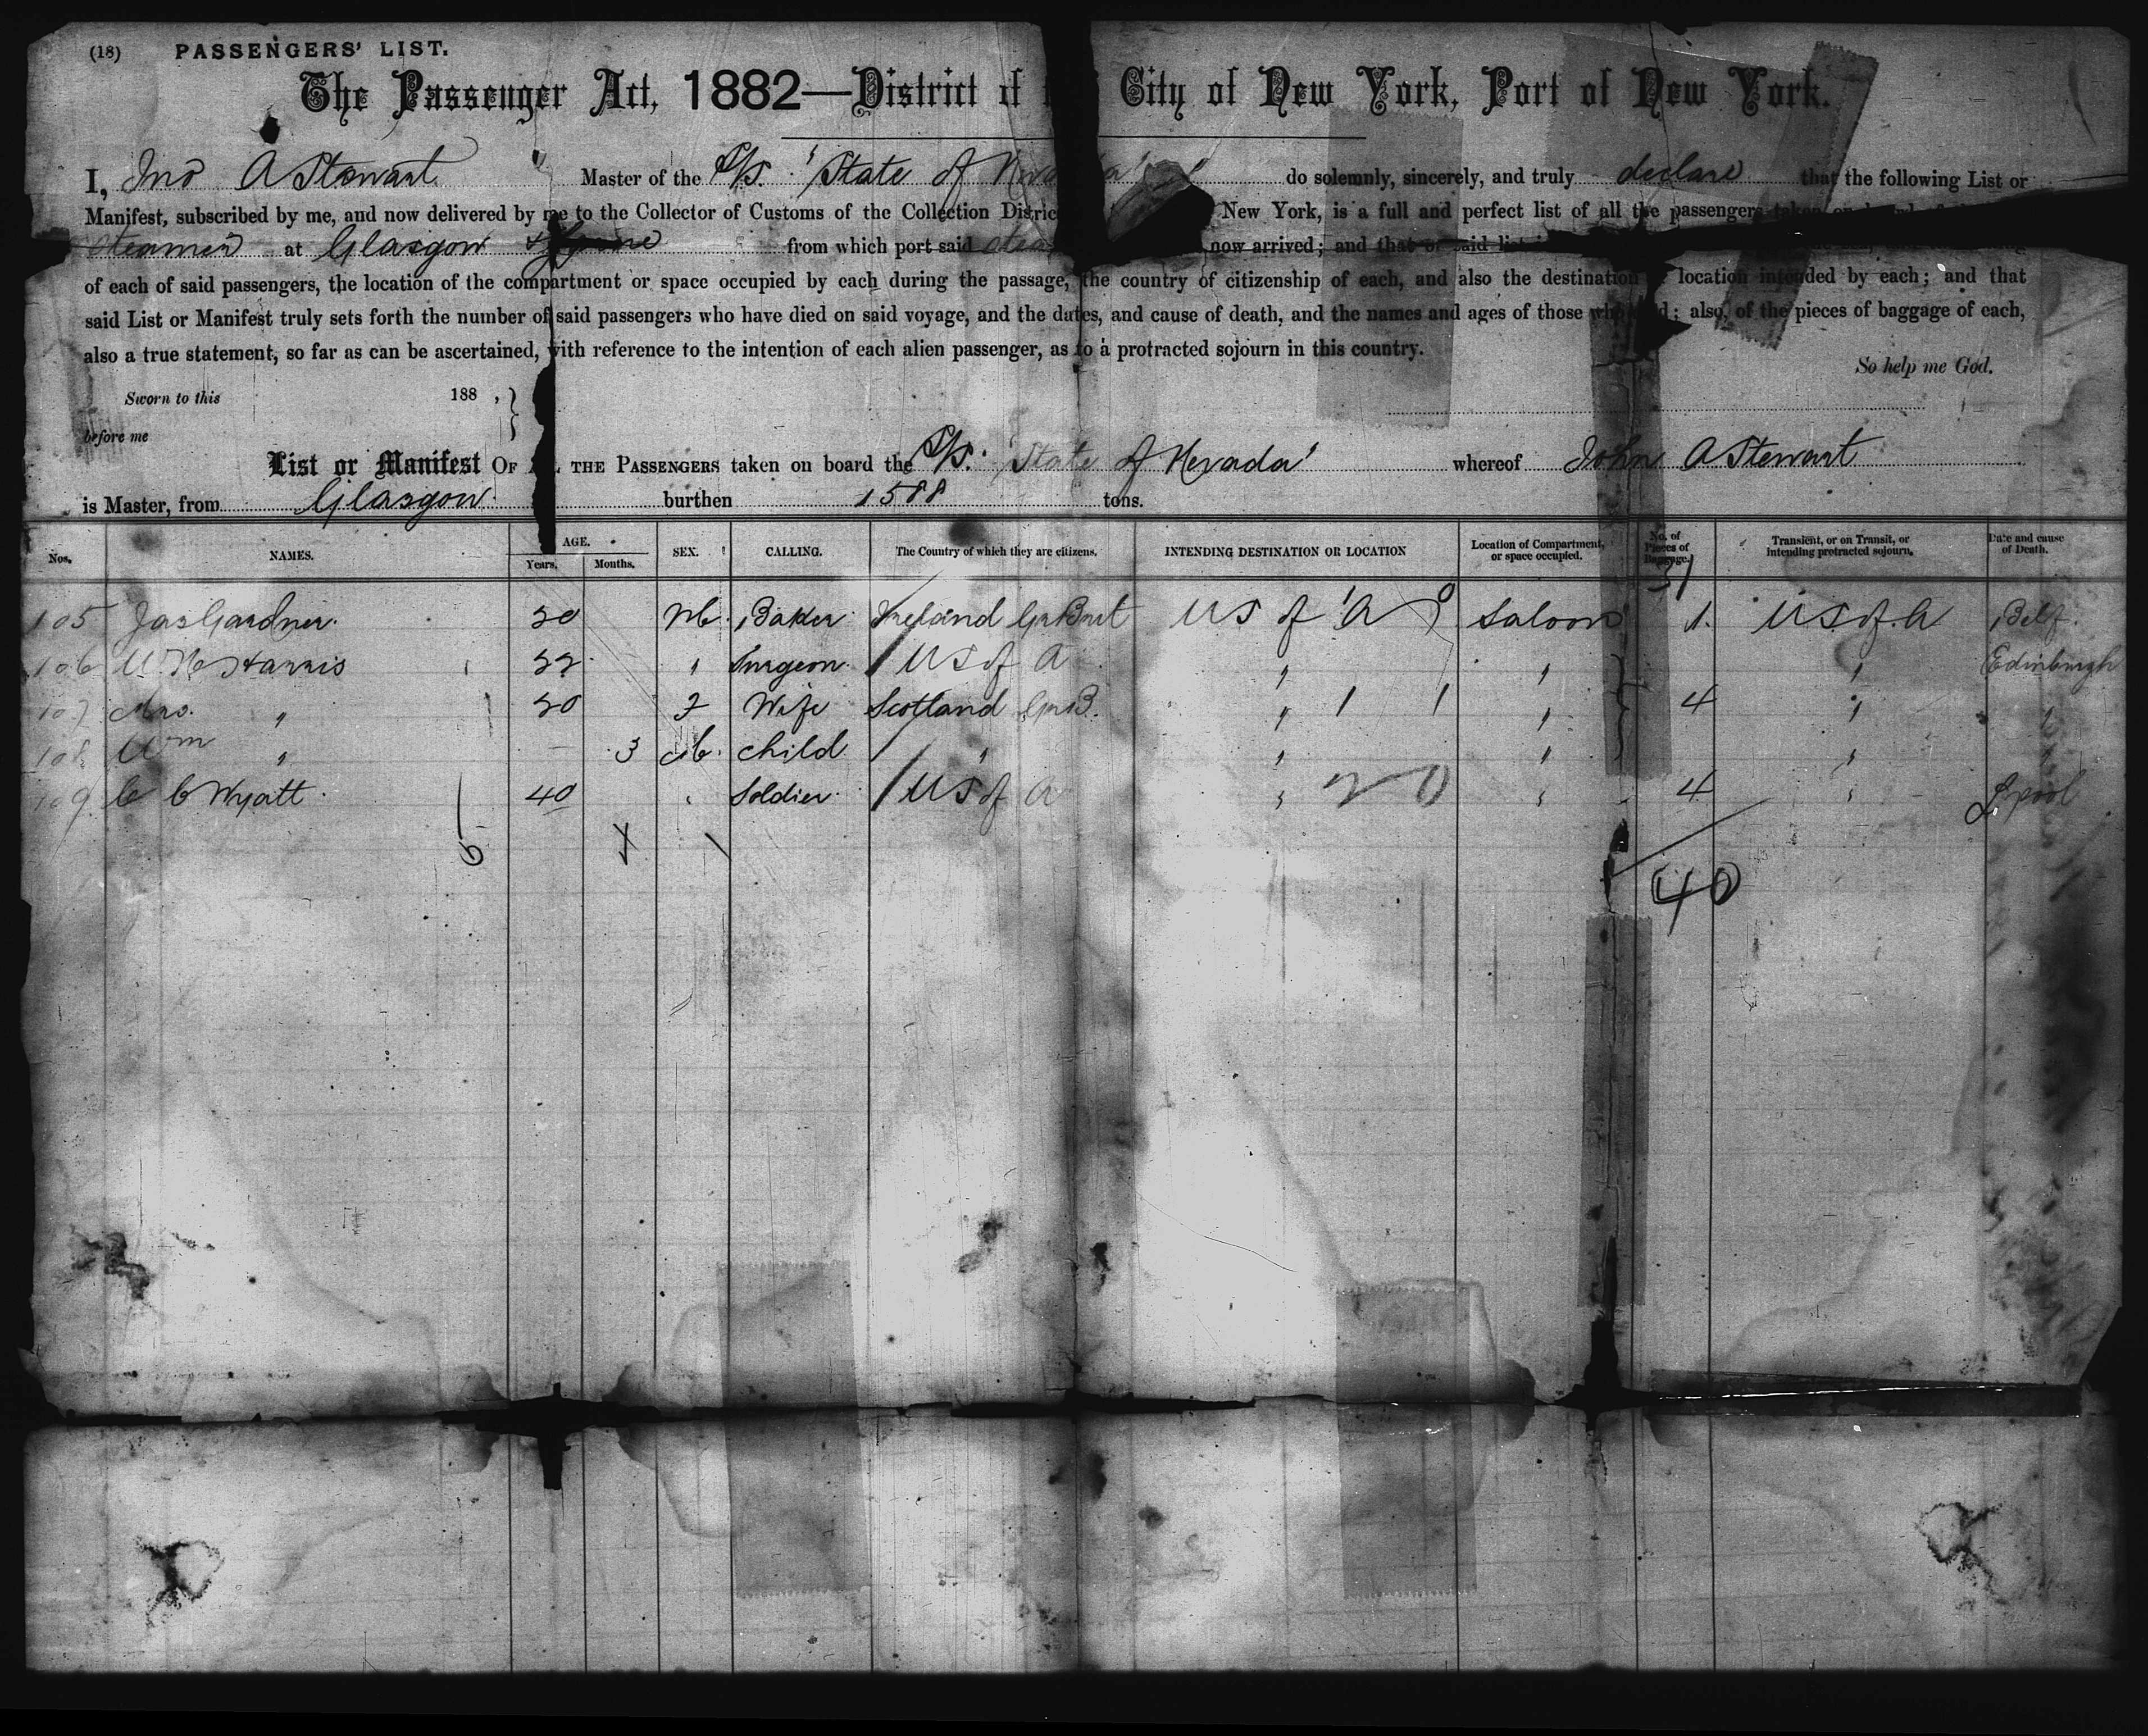 (18) PASSENGERS' LIST.
The Passenger Act, 1882—District of City of New York, Port of New York.
I, Jno A Stewart Master of the S/S. 'State of Nevada' do solemnly, sincerely, and truly declare that the following List or
Manifest, subscribed by me, and now delivered by me to the Collector of Customs of the Collection District New York, is a full and perfect list of all the passengers taken on board of
steamer at Glasgow from which port said now arrived; and that on said list
of each of said passengers, the location of the compartment or space occupied by each during the passage, the country of citizenship of each, and also the destination location intended by each; and that
said List or Manifest truly sets forth the number of said passengers who have died on said voyage, and the dates, and cause of death, and the names and ages of those who ; also, of the pieces of baggage of each,
also a true statement, so far as can be ascertained, with reference to the intention of each alien passenger, as to a protracted sojourn in this country.
So help me God.
Sworn to this 188 ,
before me
List or Manifest OF THE PASSENGERS taken on board the S/S. 'State of Nevada' whereof John A Stewart
is Master, from Glasgow burthen 1588 tons.
Nos. NAMES. AGE. Years. Months. SEX. CALLING. The Country of which they are citizens. INTENDING DESTINATION OR LOCATION Location of Compartment, or space occupied. No. of Pieces of Baggage. Transient, or on Transit, or intending protracted sojourn. Date and cause of Death.
31
105 Jas Gardner. 20 M. Baker Ireland Gr Brit US of A Saloon 1. US of A Belf.
106 Harris " Surgeon. US of A " " " Edinburgh
107 Mrs. " 20 F Wife Scotland Gr B. " 1 1 " 4 " "
108 Wm " 3 M. child " " " " "
109 C C Wyatt 40 " Soldier. US of A " 20 " 4 " Lpool
5 X
40